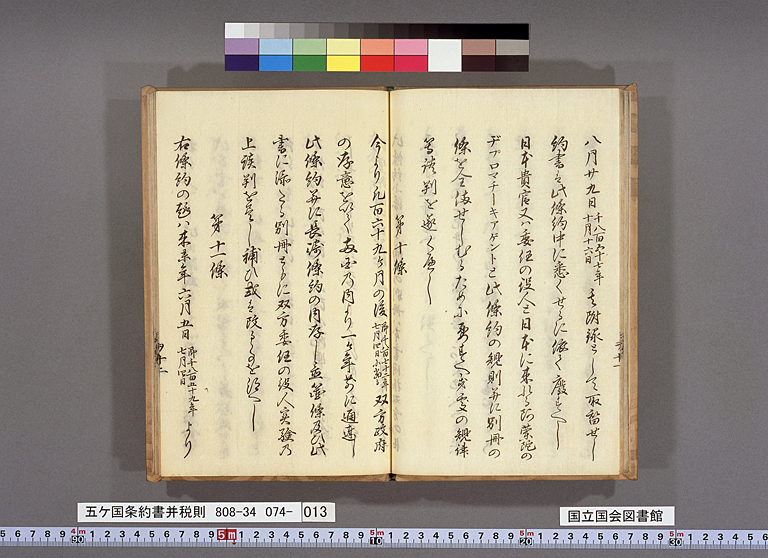 八月廿九日千八百五十七年十月十六日 其附録として取留せし
約書ハ此條約中に悉くせるに依く廢すへし
日本貴官又ハ委任の役人と日本に来れる阿蘭陀の
ヂプロマチーキアゲントと此條約の規則并に別冊の
條を全備せしむるために要すへき處の規律
等談判を遂くへし
第十條
今より凡百六十九ケ月の後即千八百七十二年七月四日に當る 双方政府
の存意を以て兩国の内より一ケ年前に通達し
此條約并に長崎條約の内存し置箇條及ひ此
書に添たる別冊ともに双方委任の役人実験乃
上談判を盡し補ひ或ハ改る事を得へし
第十一條
右條約の趣ハ来未年六月五日即千八百五十九年七月四日 より
五ケ国条約書并税則 808-34 074- 013
国立国会図書館